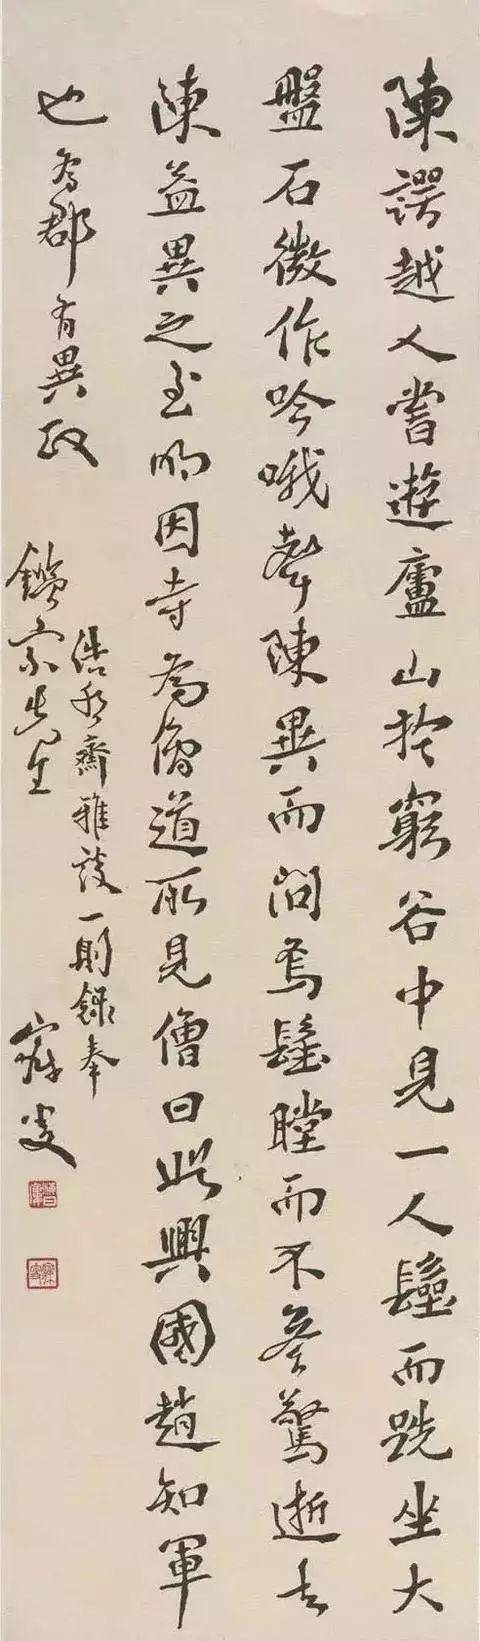 陳諤越人嘗遊廬山於窮谷中見一人髽而跣坐大
盤石微作吟哦聲陳異而問焉髽瞠而不答驚逝去
陳益異之至明因寺為僧道所見僧曰此興國趙知軍
也為郡有異政
浩然齋雅談一則錄奉
鑑宗先生
寐叟